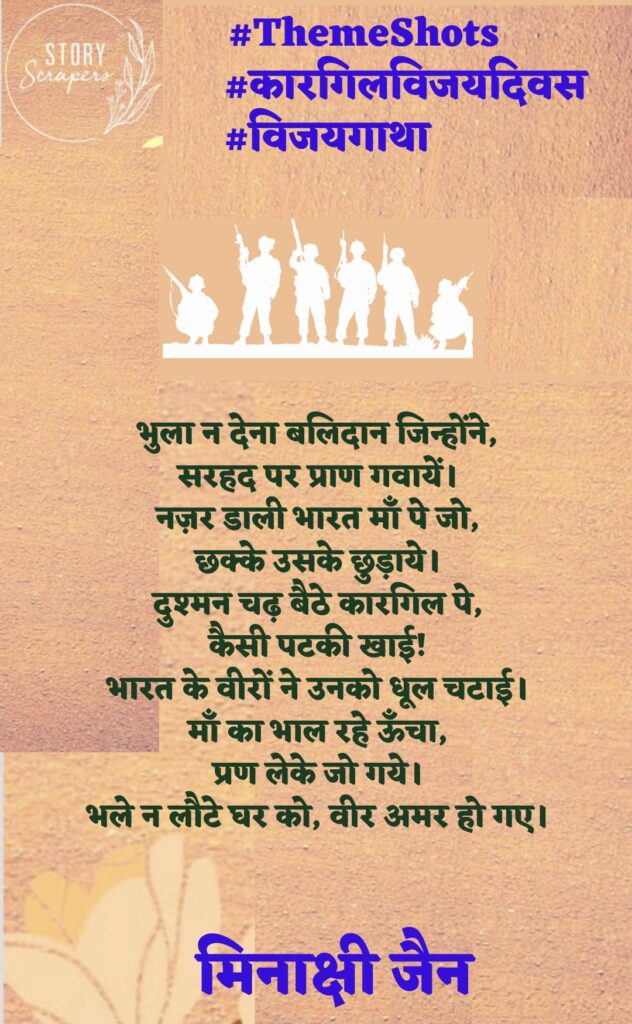 STORY
Scrapers
#ThemeShots
#कारगिलविजयदिवस
#विजयगाथा
भुला न देना बलिदान जिन्होंने,
सरहद पर प्राण गवायें।
नज़र डाली भारत माँ पे जो,
छक्के उसके छुड़ाये।
दुश्मन चढ़ बैठे कारगिल पे,
कैसी पटकी खाई!
भारत के वीरों ने उनको धूल चटाई।
माँ का भाल रहे ऊँचा,
प्रण लेके जो गये।
भले न लौटे घर को, वीर अमर हो गए।
मिनाक्षी जैन